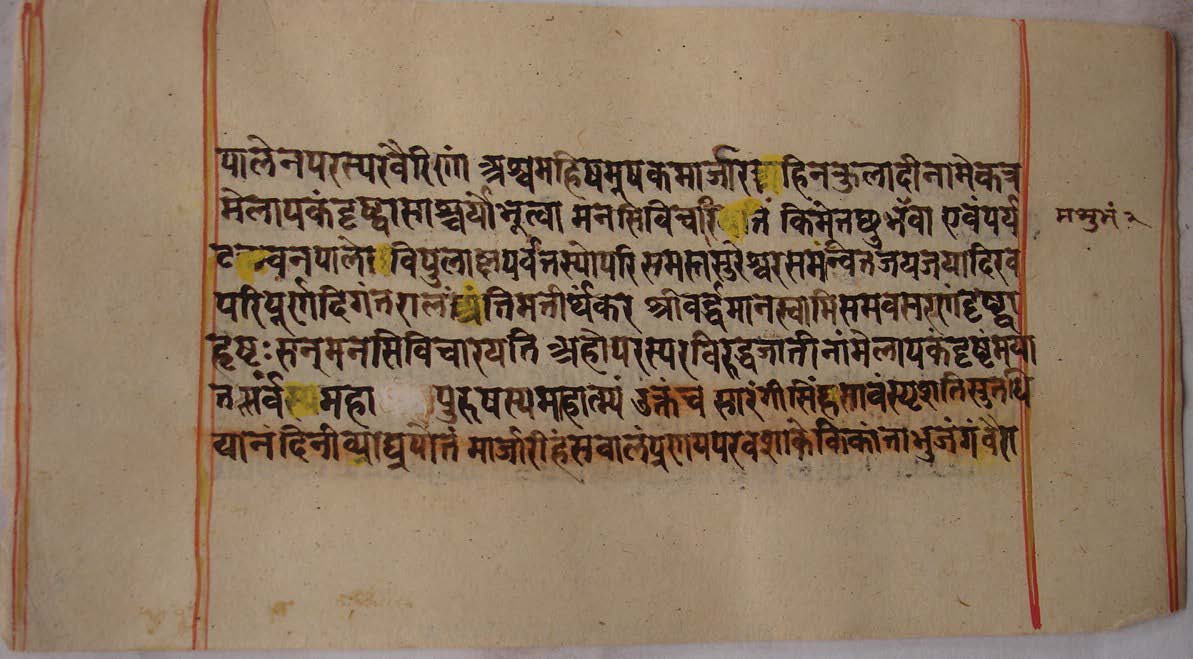 पालेनपरस्परवैरिणां अश्वमहिषमूषकमार्जारहिनकुलादीनामेकत्र
मेलापकंदृष्ट्वासाश्चर्योभूत्वा मनसिविचारितं किमेतष्शुभंवा एवंपर्य
वनपालो विपुलाचलपर्वतस्योपरि समस्तसुरेश्वरसमन्वितंजयजयादिरव
परिपूर्णदिगंतरालं तिमतीर्थंकर श्रीवर्द्धमानस्वामिसमवसरणंदृष्ट्वा
हृष्टःसन्मनसिविचारयति अहोपरस्परविरुद्धजातीनांमेलापकंदृष्टंमया
तत्सर्वंमहापुरुषस्यमाहात्म्यं उक्तंच सारंगीसिंहसावंस्पृशतिसुतधि
यानंदिनीव्याघ्रपोतं मार्जारीहंसबालंप्रणयपरवशाकेकिकांताभुजंगं वैरा